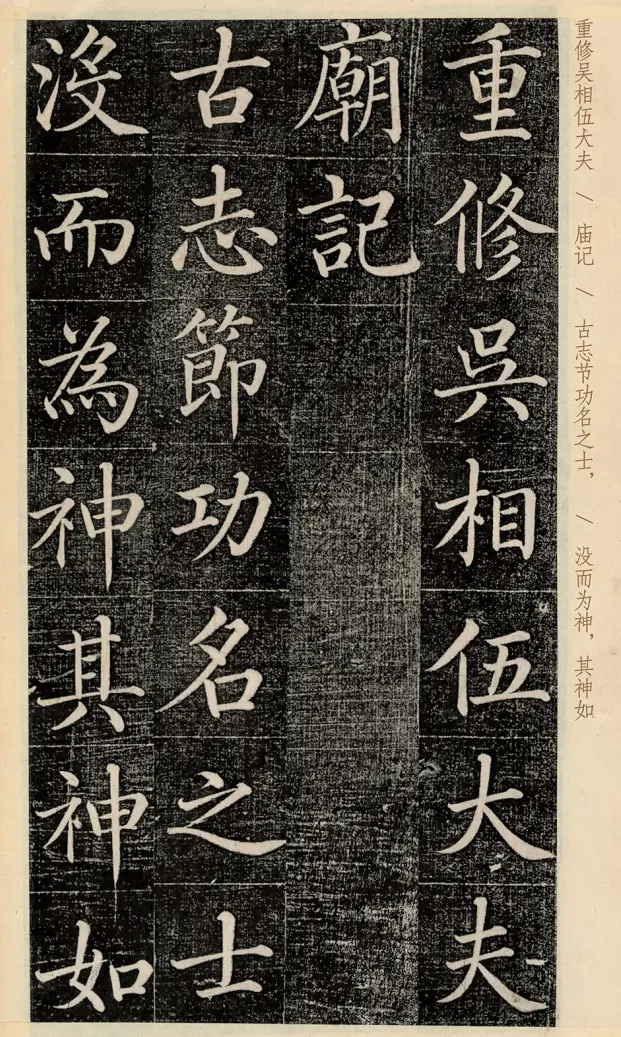 重修吴相伍大夫 \ 庙记 \ 古志节功名之士， \ 没而为神，其神如
重修吳相伍大夫
廟記
古志節功名之士
沒而為神其神如